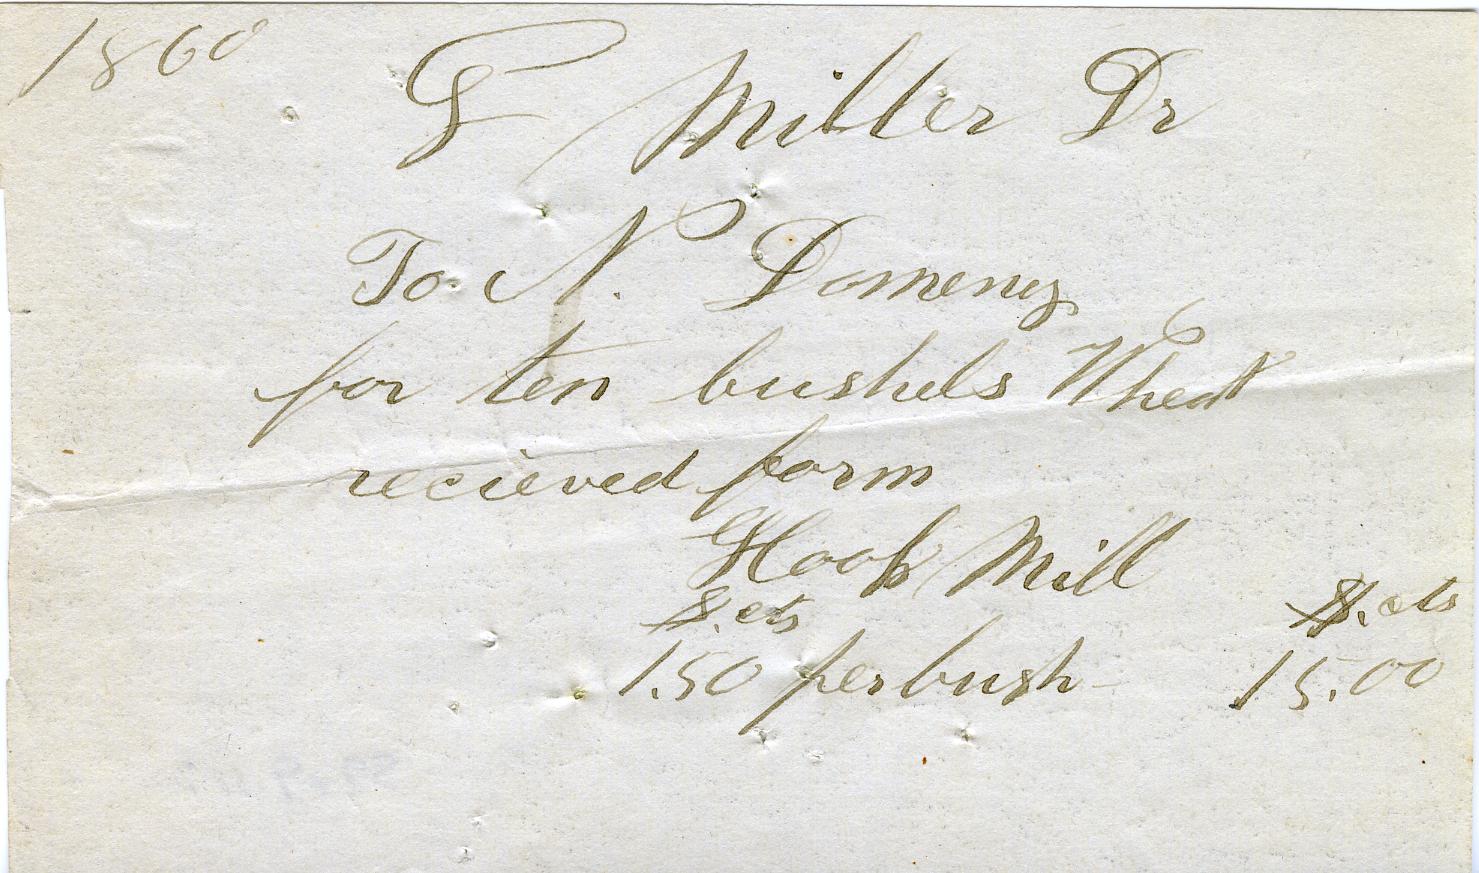 1860
Miller Dr
To N. Domeny
for ten bushels Wheat
recieved form
Hoop Mill
$.cts $.cts
1.50 per bush 15.00